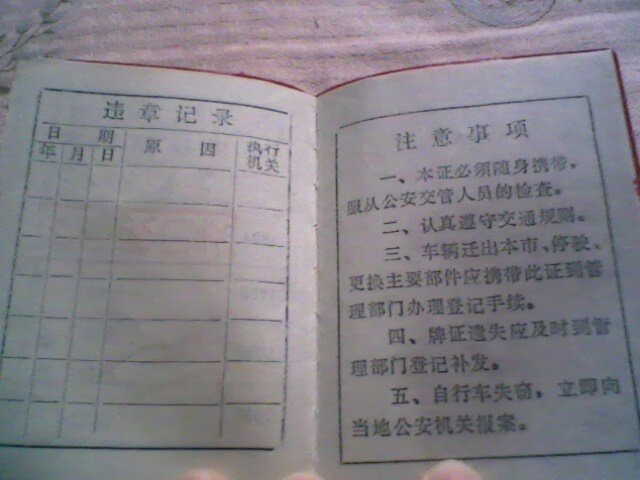 违章记录
日 期
年 月 日
原 因
执行
机关
注意事项
一、本证必须随身携带，
服从公安交管人员的检查。
二、认真遵守交通规则。
三、车辆迁出本市、停驶、
更换主要部件应携带此证到管
理部门办理登记手续。
四、牌证遗失应及时到管
理部门登记补发。
五、自行车失窃，立即向
当地公安机关报案。